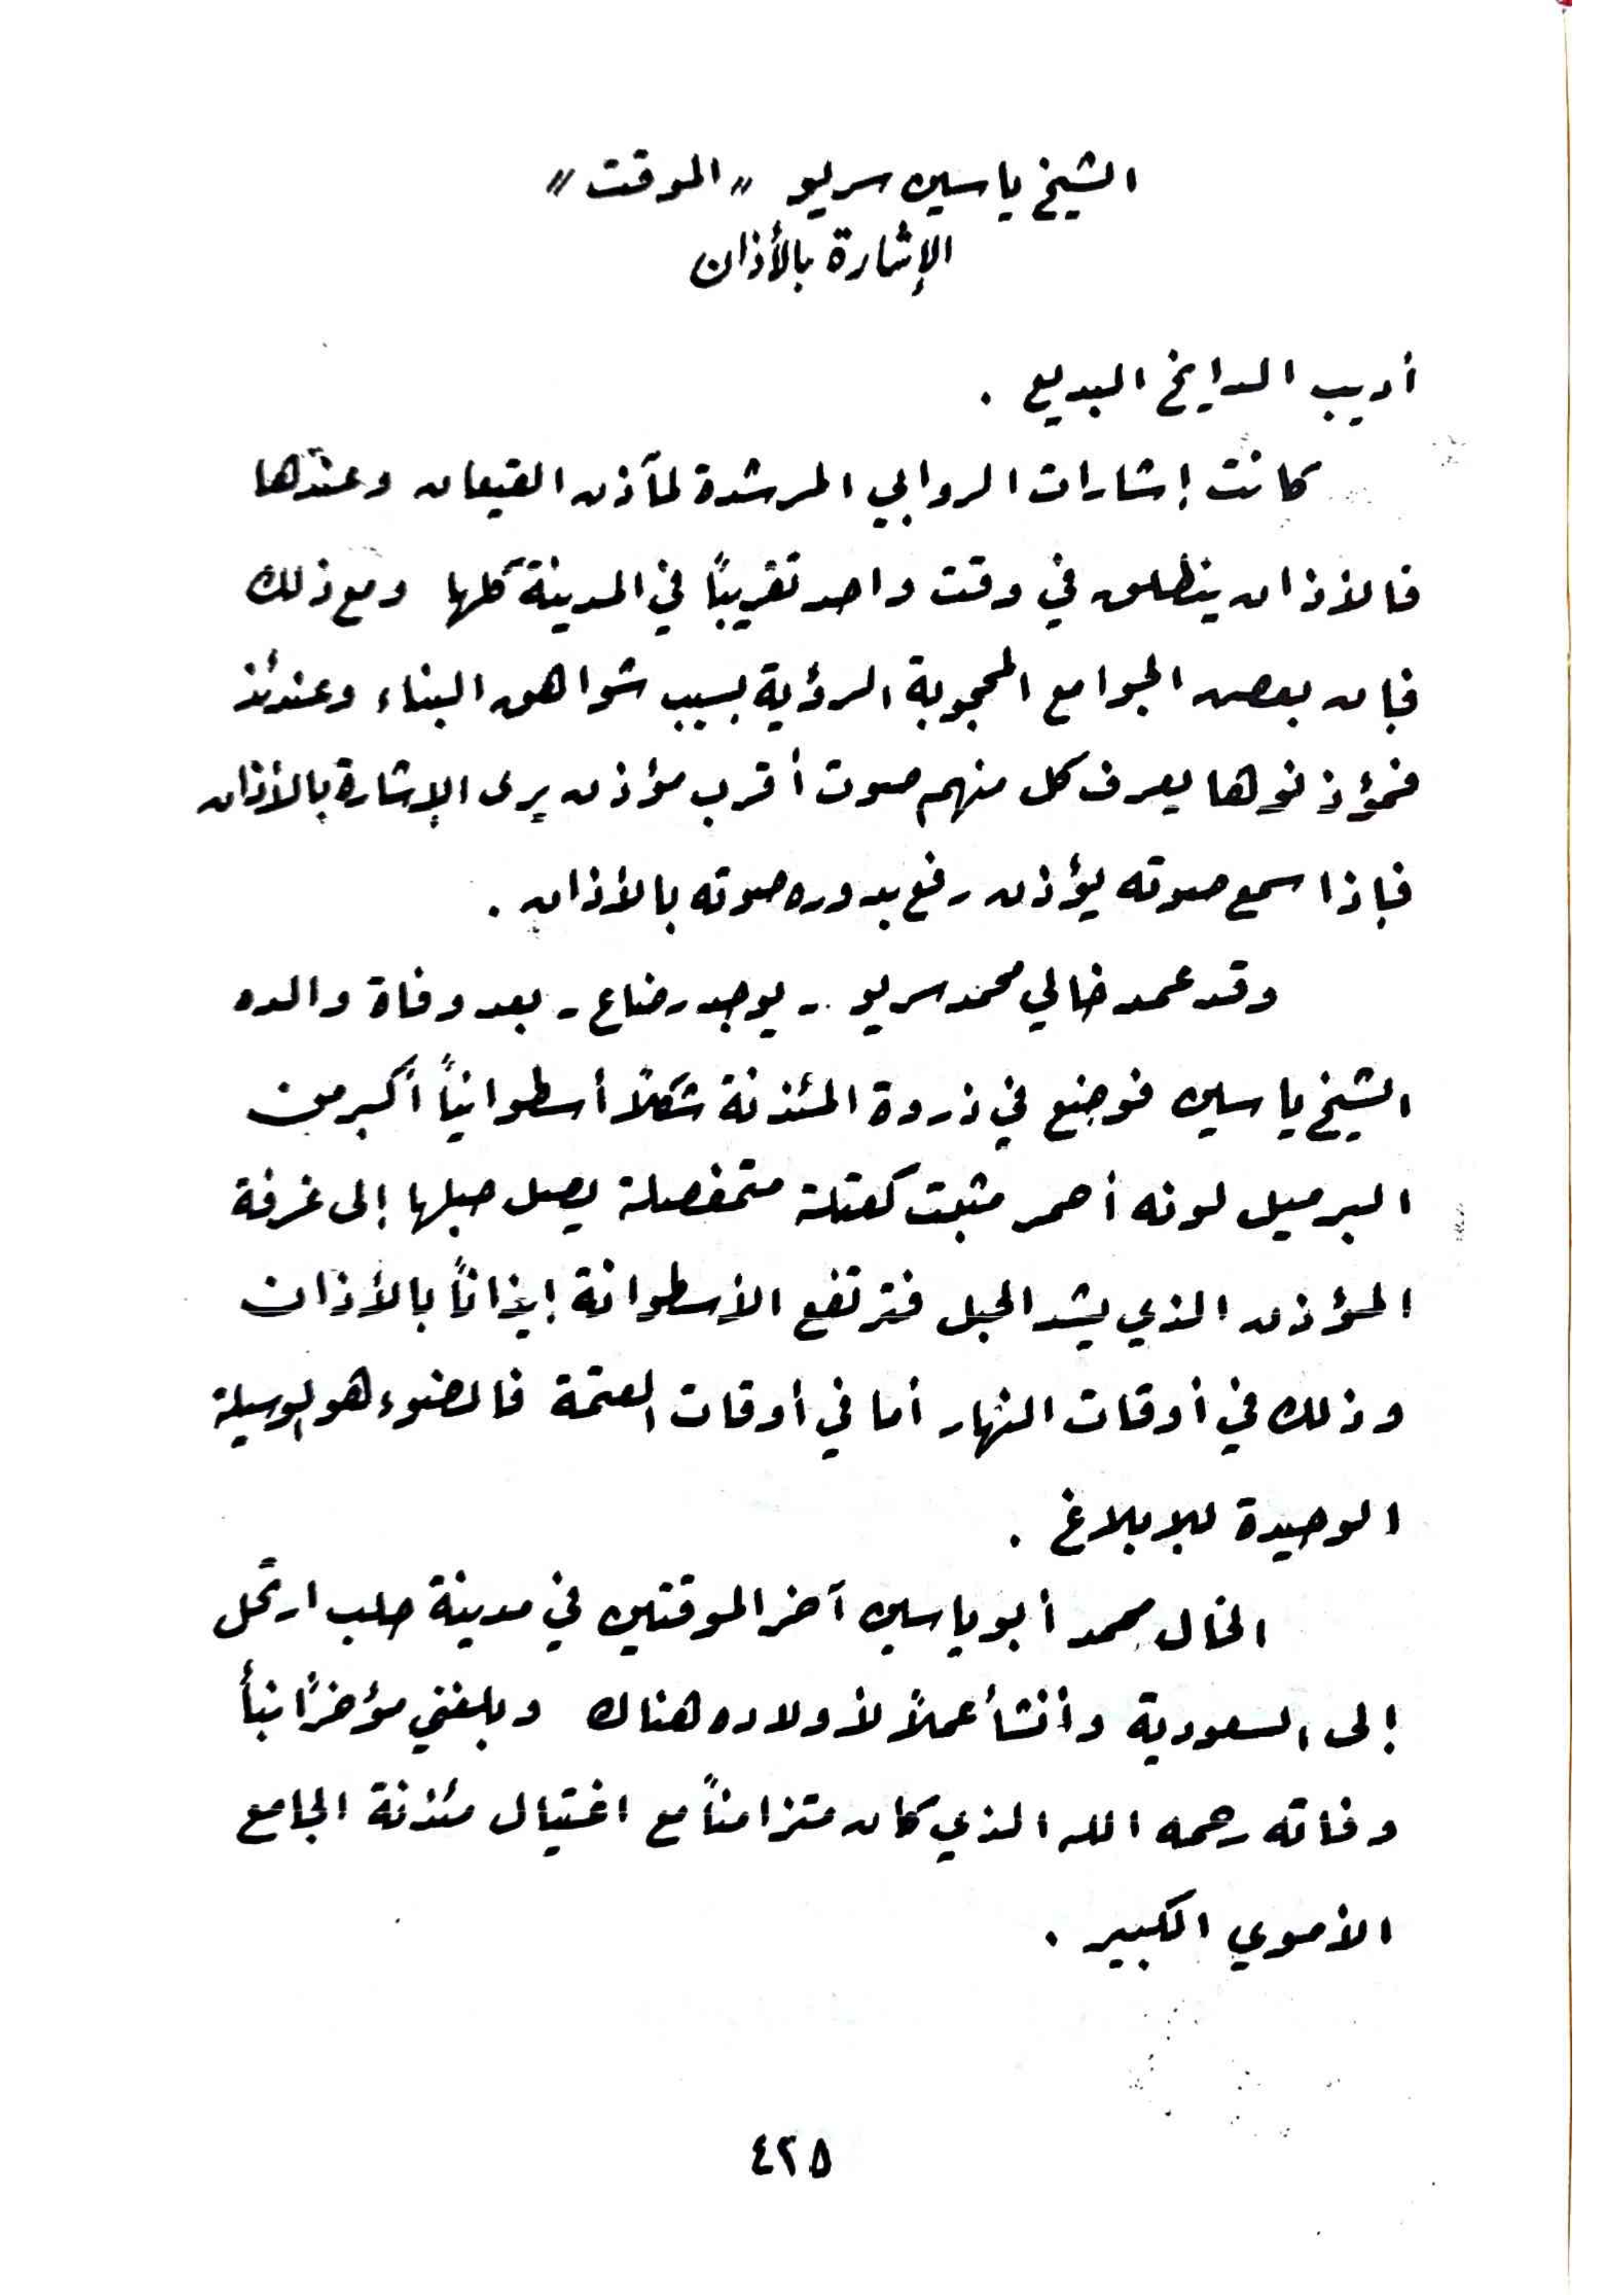 الشيخ ياسين سريو "الموقت"
الإشارة بالأذان
أديب الدايخ البديع .
كانت إشارات الروابي المرشدة لمآذن القيعان وعندها
فالأذان ينطلق في وقت واحد تقريباً في المدينة كلها ومع ذلك
فإن بعض الجوامع المحجوبة الرؤية بسبب شواهق البناء وعندئذ
يعرف كل منهم صوت أقرب مؤذن يرى الإشارة بالأذان
فإذا سمع صوته يؤذن رفع بدوره صوته بالأذان .
وقد عمد خالي محمد سريو - يوجد رضاع - بعد وفاة والده
الشيخ ياسين فوضع في ذروة المئذنة شكلاً أسطوانياً أكبر من
البرميل لونه أحمر مثبت كعتلة متمفصلة يصل حبلها إلى غرفة
المؤذن الذي يشد الحبل فترتفع الأسطوانة إيذاناً بالأذان
وذلك في أوقات النهار أما في أوقات العتمة فالضوء هو الوسيلة
الوحيدة للإبلاغ .
الخال محمد أبو ياسين آخر الموقتين في مدينة حلب ارتحل
إلى السعودية وأنشأ عملاً لأولاده هناك وبلغني مؤخراً نبأ
وفاته رحمه الله الذي كان متزامناً مع اغتيال مئذنة الجامع
الأموي الكبير .
٤٢٥